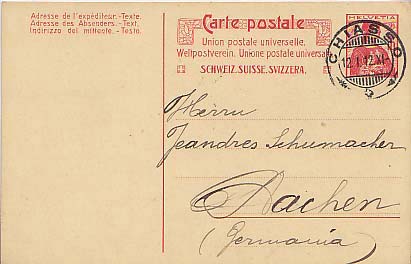 Adresse de l'expéditeur.-Texte.
Adresse des Absenders.-Text.
Indirizzo del mittente.-Testo.
Carte postale
Union postale universelle.
Weltpostverein. Unione postale universale
SCHWEIZ.SUISSE.SVIZZERA.
HELVETIA
CHIASSO
12.I.12.XI-
Herrn
Jeandres Schumacher
Aachen
(Germania)